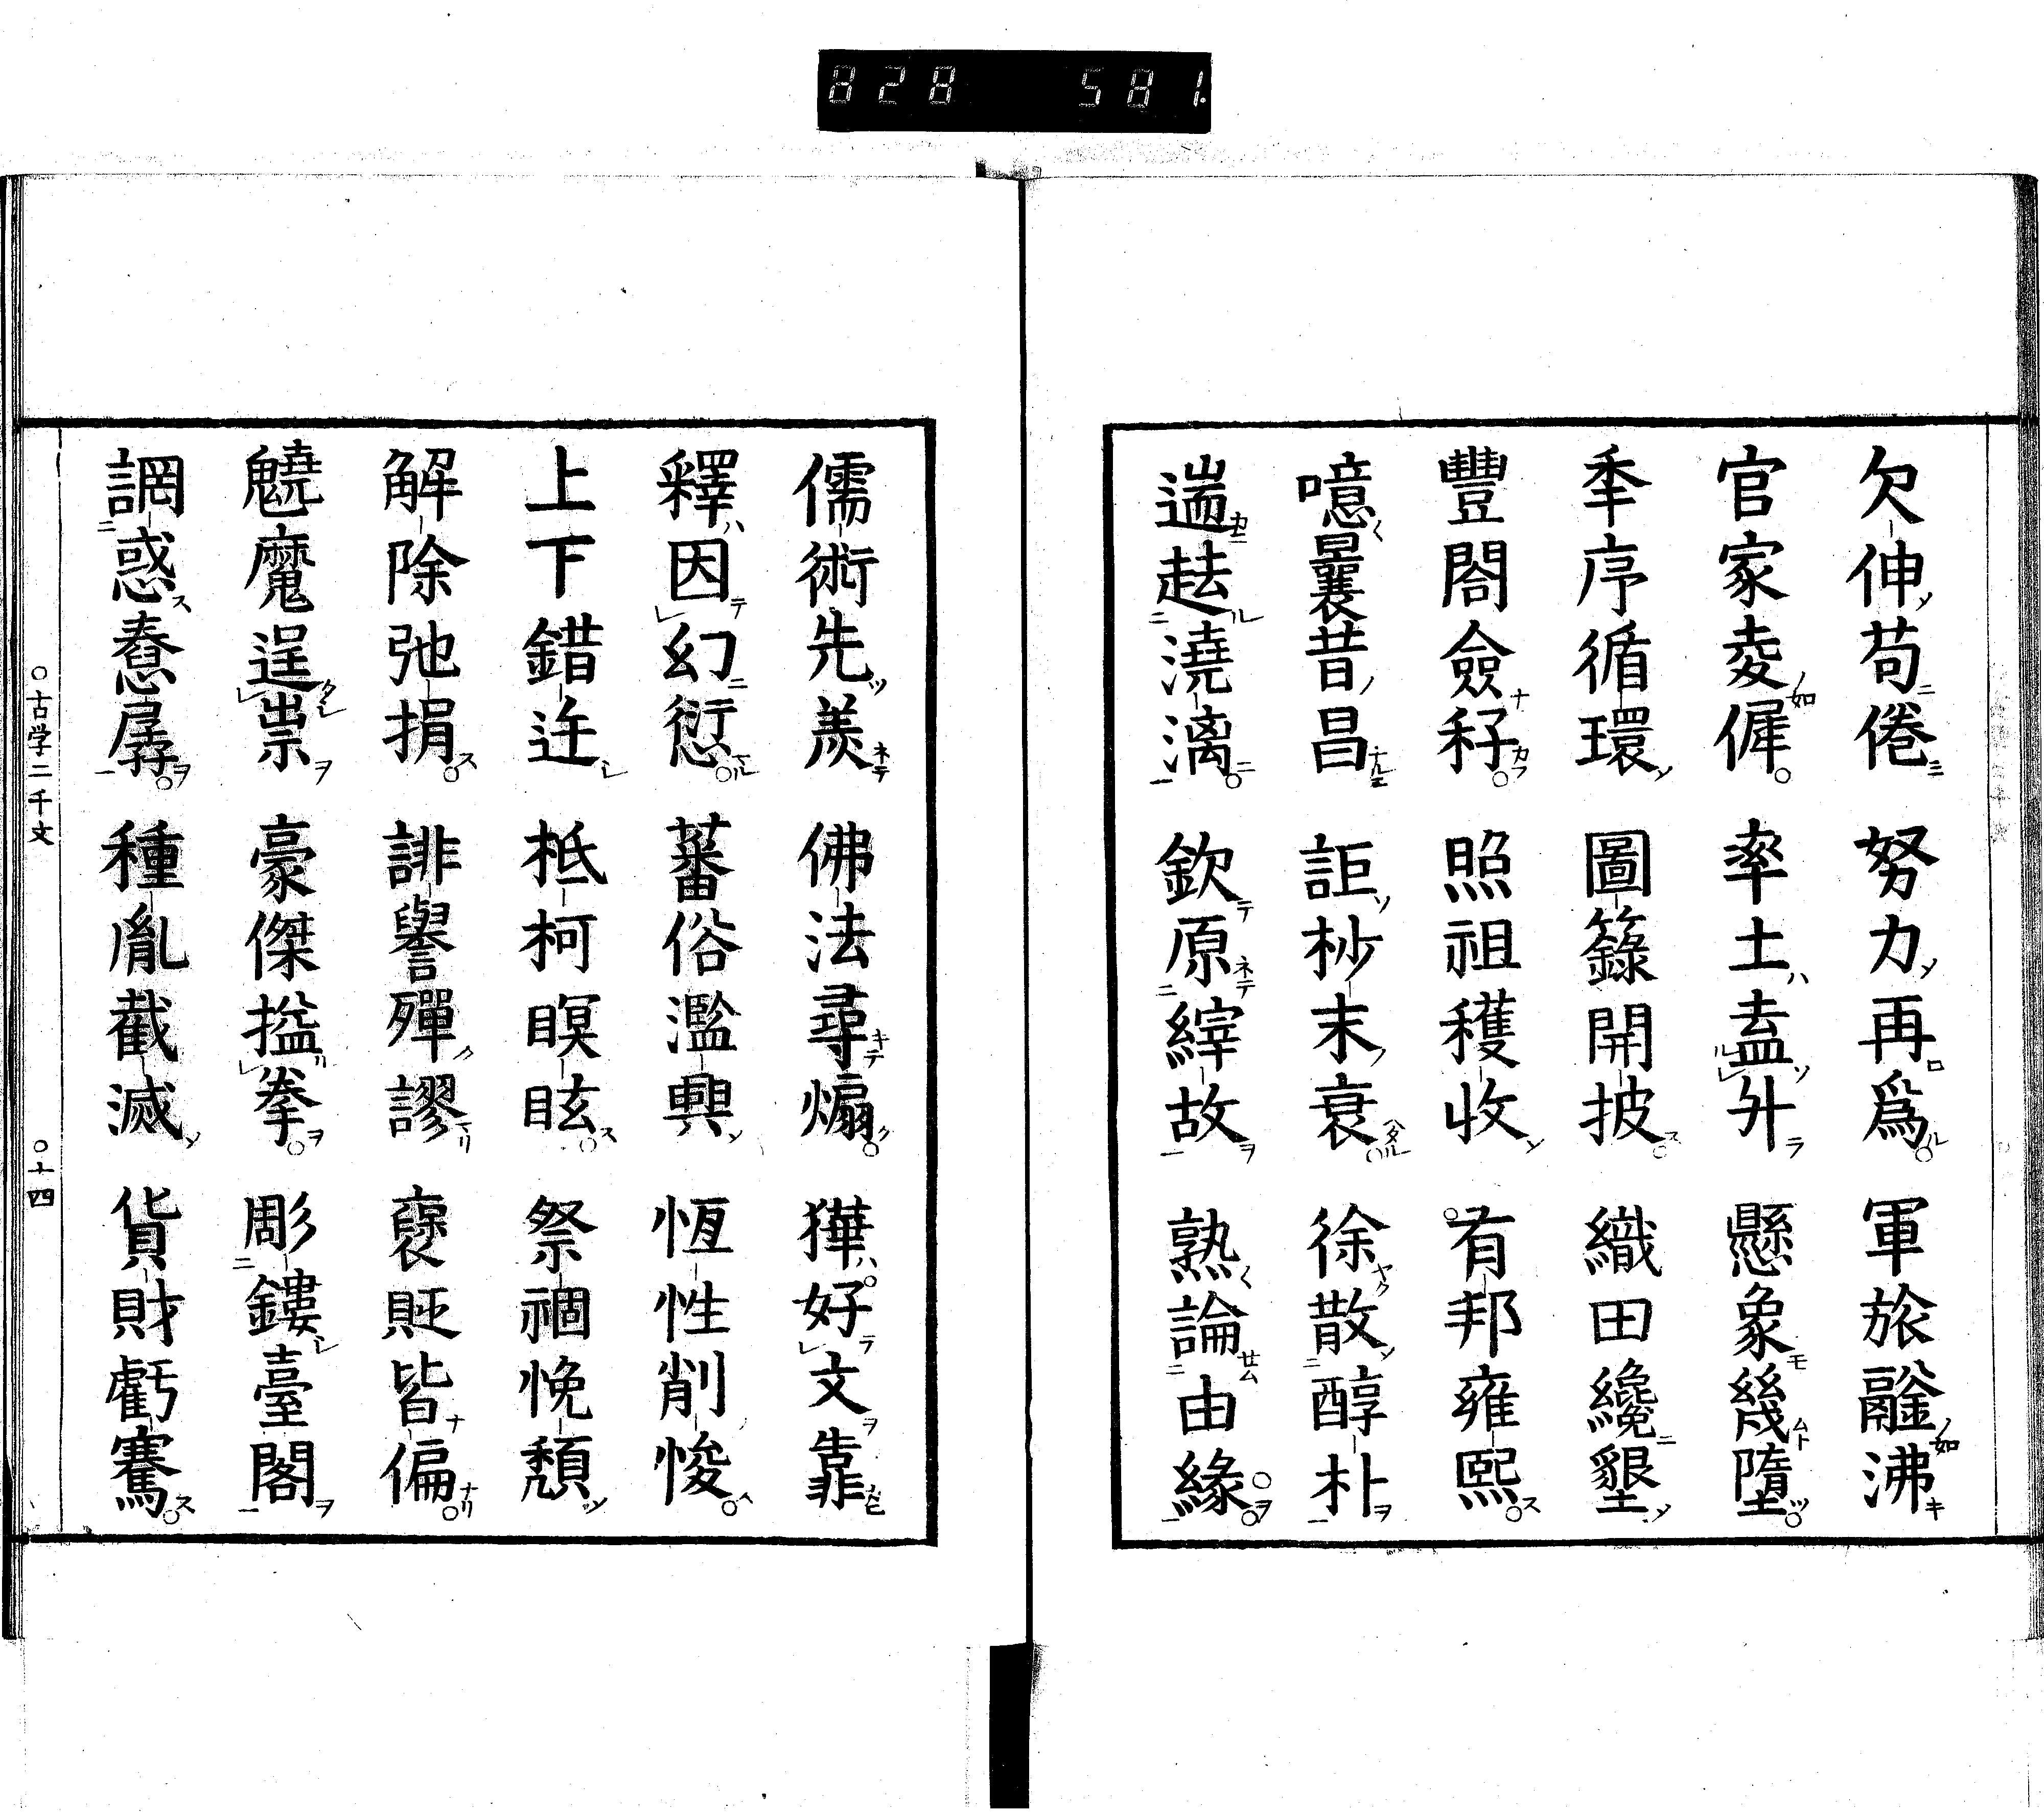 828 581.
欠伸苟倦 努力再爲 軍旅 沸
官家夌偋 率土盍外 懸象幾墮
秊序循環 圖籙開披 織田纔墾
豐閤僉秄 照祖穫收 有邦雍熙
噫曩昔昌 詎杪末衰 徐散醇朴
遄 澆漓 欽原縡故 熟論由緣
儒術先羨 佛法尋煽 獋好文靠
釋因幻愆 蕃俗濫興 恆性削悛
上下錯迕 柢柯瞑眩 祭祻悗頹
解除弛捐 誹譽殫謬 褒貶皆偏
魔逞祟 豪傑搤拳 彫鏤臺閣
誷惑惷孱 種胤截滅 貨財虧騫
○古学二千文 ○十四